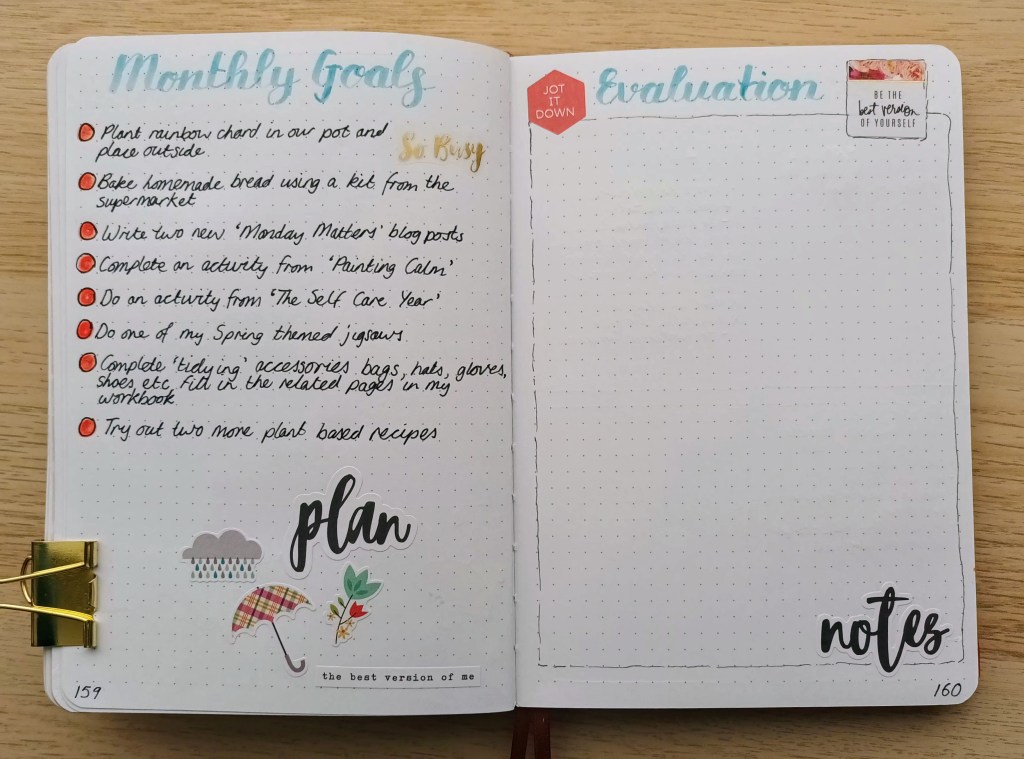 Monthly Goals
Plant rainbow chard in our pot and
place outside.
So Busy
Bake homemade bread using a kit from the
supermarket
Write two new 'Monday Matters' blog posts
Complete an activity from 'Painting Calm'
Do an activity from 'The Self Care Year'
Do one of my Spring themed jigsaws.
Complete 'tidying' accessories bags, hats, gloves,
shoes, etc. Fill in the related pages in my
workbook.
Try out two more plant based recipes
plan
the best version of me
159
JOT
IT
DOWN
Evaluation
BE THE
best version
OF YOURSELF
notes
160